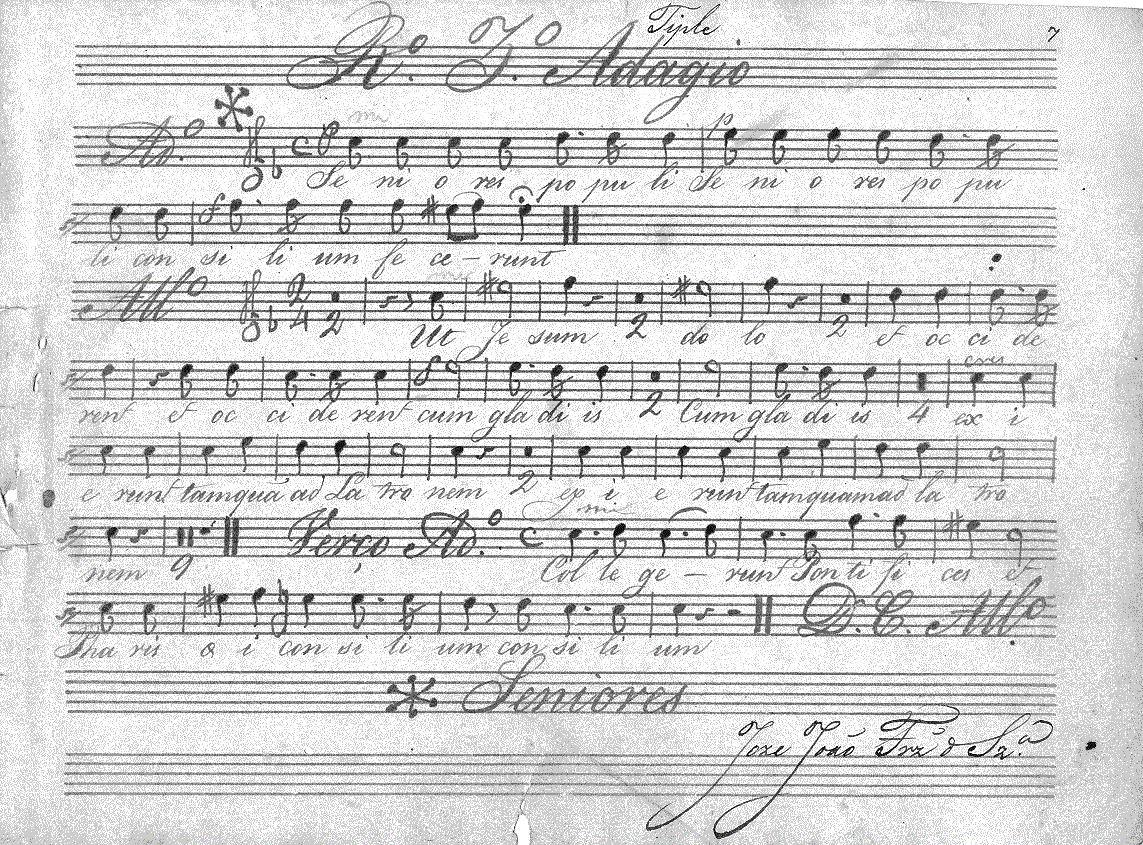 Tiple
7
R.º 7.º Adagio
Ad.º
Se ni o res po pu li Se ni o res po pu
li con si li um fe ce – runt
All.º 2 4 2 2 2
Ut Je sum do lo et oc ci de
rent et oc ci de rent cum gla di is 2 Cum gla di is 4 ex i
e runt tamquã ad La tro nem 2 ex i e runt tamquam ad la tro
Verço Ad.º
nem 9 Col le ge – runt Pon ti fi ces et
D. C. All.º
Pha ris æ i con si li um con si li um
Seniores
Joze João Frz d Sz.ª